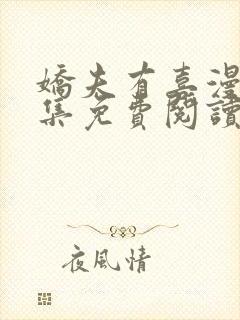 嬌夫有喜漫
集免費閱讀
夜風情